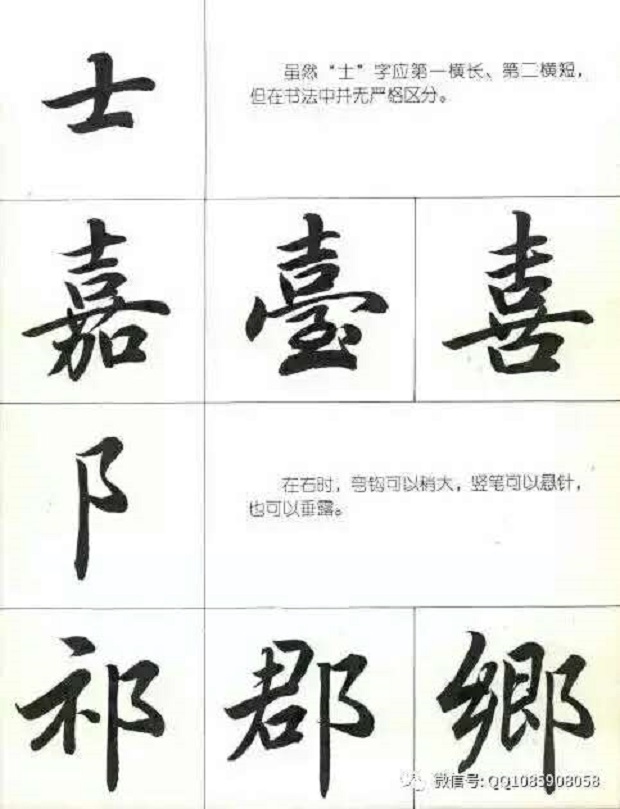 士
虽然“士”字应第一横长、第二横短，
但在书法中并无严格区分。
嘉 臺 喜
阝
在右时，弯钩可以稍大，竖笔可以悬针，
也可以垂露。
祁 郡 鄉
微信号: QQ1085908058